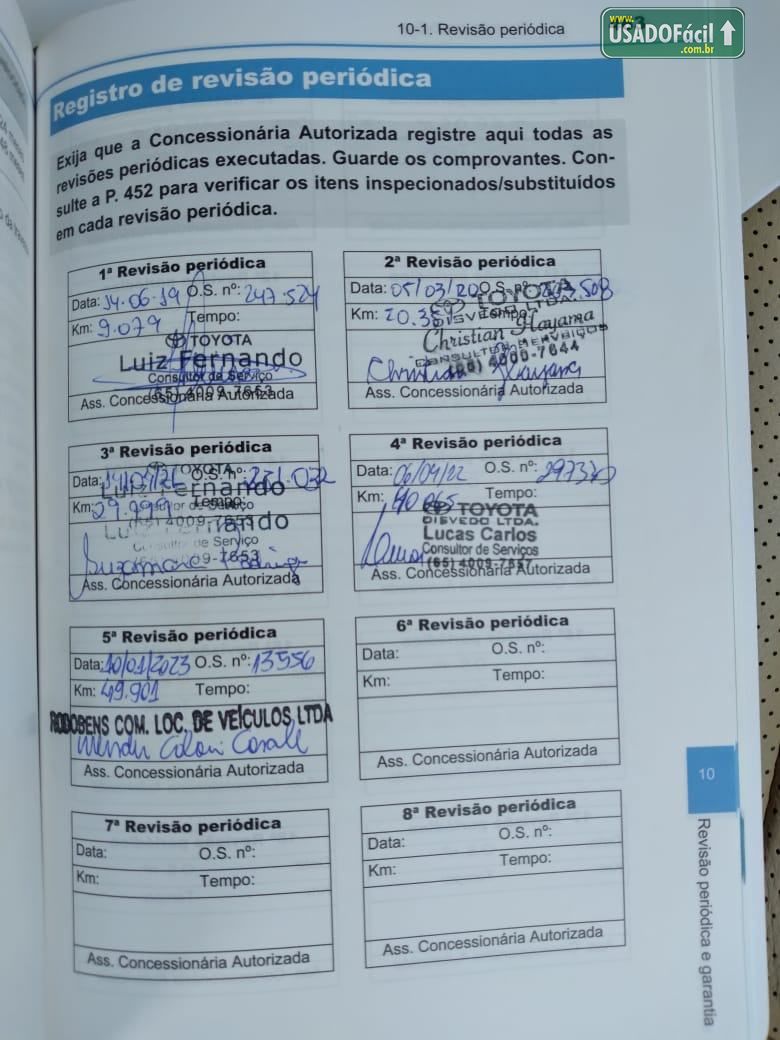 10-1. Revisão periódica
www.
USADOFácil
.com.br
Registro de revisão periódica
Exija que a Concessionária Autorizada registre aqui todas as
revisões periódicas executadas. Guarde os comprovantes. Con-
sulte a P. 452 para verificar os itens inspecionados/substituídos
em cada revisão periódica.
1ª Revisão periódica
Data: 14.06.19 O.S. nº: 247.524
Km: 9.079 Tempo:
TOYOTA
Luiz Fernando
Consultor de Serviço
(65) 4009-7653
Ass. Concessionária Autorizada
2ª Revisão periódica
Data: 05/03/20 O.S. nº:
Km: Tempo:
TOYOTA
DISVEDO LTDA.
Christian Hayama
Ass. Concessionária Autorizada
3ª Revisão periódica
Data: O.S. nº:
Km: Tempo:
TOYOTA
Luiz Fernando
Consultor de Serviço
(65) 4009-7653
Luiz Fernando
Consultor de Serviço
(65) 4009-7653
Ass. Concessionária Autorizada
4ª Revisão periódica
Data: 06/04/22 O.S. nº:
Km: 40065 Tempo:
TOYOTA
DISVEDO LTDA.
Lucas Carlos
Consultor de Serviços
(65) 4009-7657
Ass. Concessionária Autorizada
5ª Revisão periódica
Data: 10/01/2023 O.S. nº: 13556
Km: 49.901 Tempo:
RODOBENS COM. LOC. DE VEÍCULOS LTDA
Ass. Concessionária Autorizada
6ª Revisão periódica
Data: O.S. nº:
Km: Tempo:
Ass. Concessionária Autorizada
7ª Revisão periódica
Data: O.S. nº:
Km: Tempo:
Ass. Concessionária Autorizada
8ª Revisão periódica
Data: O.S. nº:
Km: Tempo:
Ass. Concessionária Autorizada
10
Revisão periódica e garantia